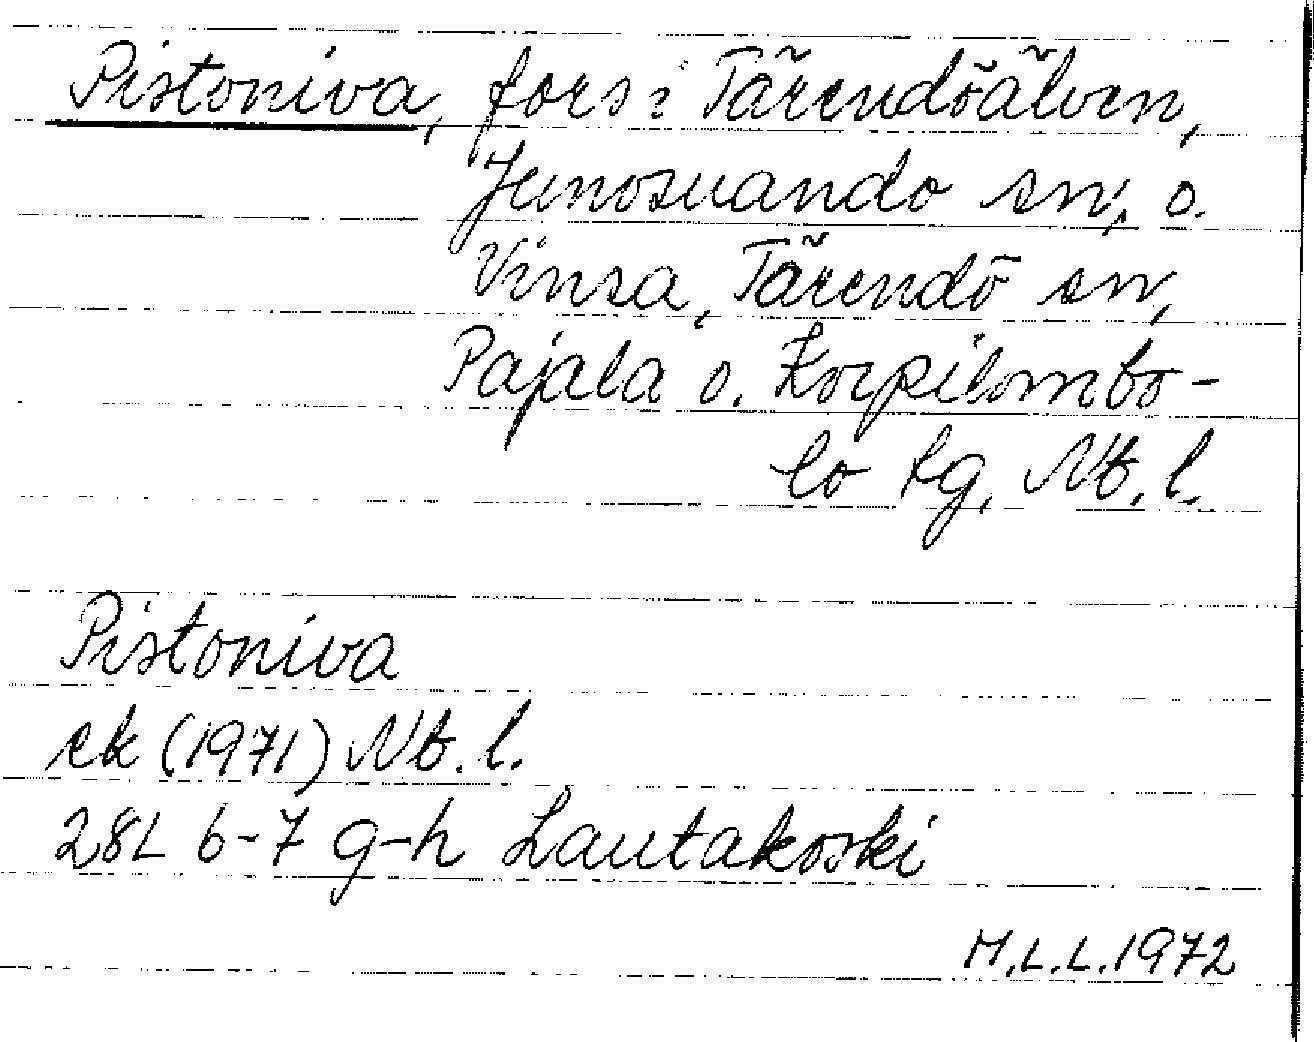 Pistoniva, fors i Tärendöälven,
Junosuando sn, o.
Vinsa, Tärendö sn,
Pajala o. Korpilombo-
lo tg, Nb. l.
Pistoniva
ek (1971) Nb. l.
28L 6-7 g-h Lautakoski
M.L.L. 1972